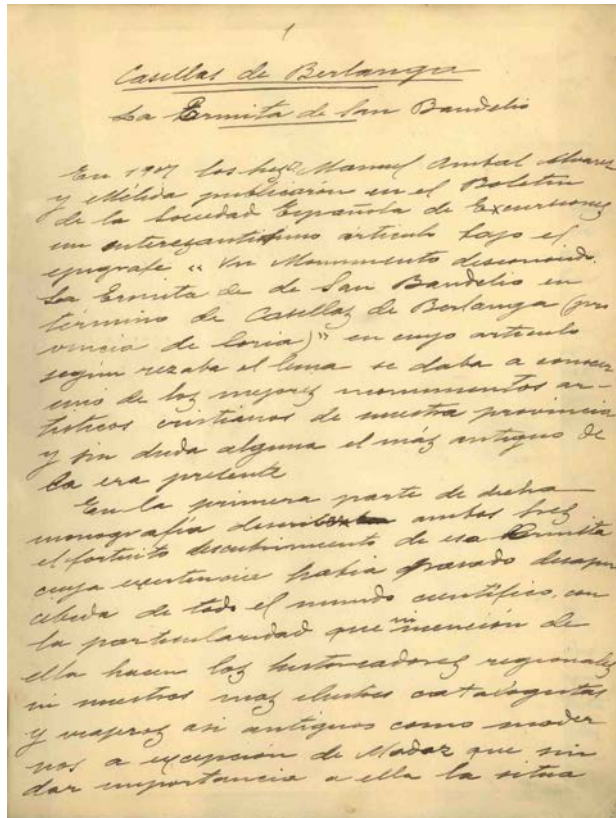 1
Casillas de Berlanga
La Ermita de San Baudelio
En 1907 los Manuel Anibal Alvarez
y Mélida publicaron en el Boletin
de la Sociedad Española de Excursiones
un interesantisimo articulo bajo el
epigrafe "Un Monumento desconocido.
La Ermita de de San Baudelio en
término de Casillas de Berlanga (pro
vincia de Soria)" en cuyo articulo
según rezaba el lema se daba a conocer
uno de los mejores monumentos ar-
tisticos cristianos de nuestra provincia
y sin duda alguna el más antiguo de
la era presente
En la primera parte de dicha
monografía ambos
el fortuito descubrimiento de esa Ermita
cuya existencia habia pasado desaper
cibida de todo el mundo cientifico, con
la particularidad que ni mención de
ella hacen los historiadores regionales
ni nuestros mas ilustres catalogistas
y viajeros asi antiguos como moder
nos a excepción de Madoz que sin
dar importancia a ella la situa